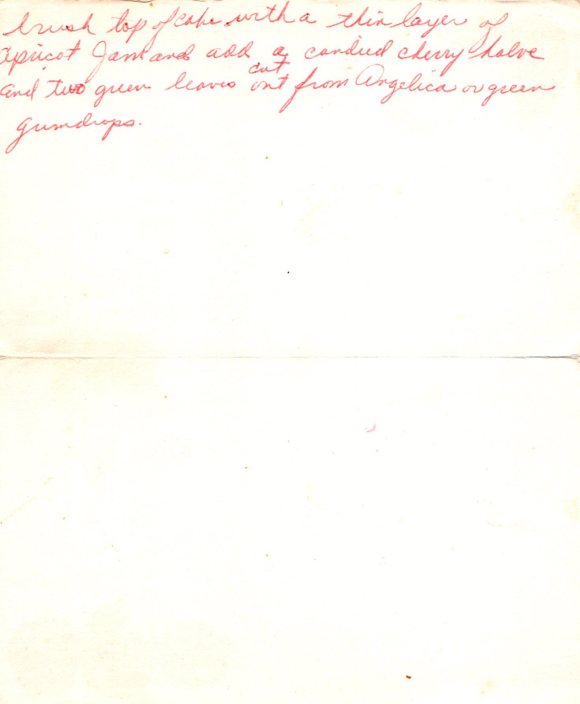 brush top of cake with a thin layer of
Apricot Jam and add a candied cherry halve
and two green leaves cut out from Angelica or green
gumdrops.